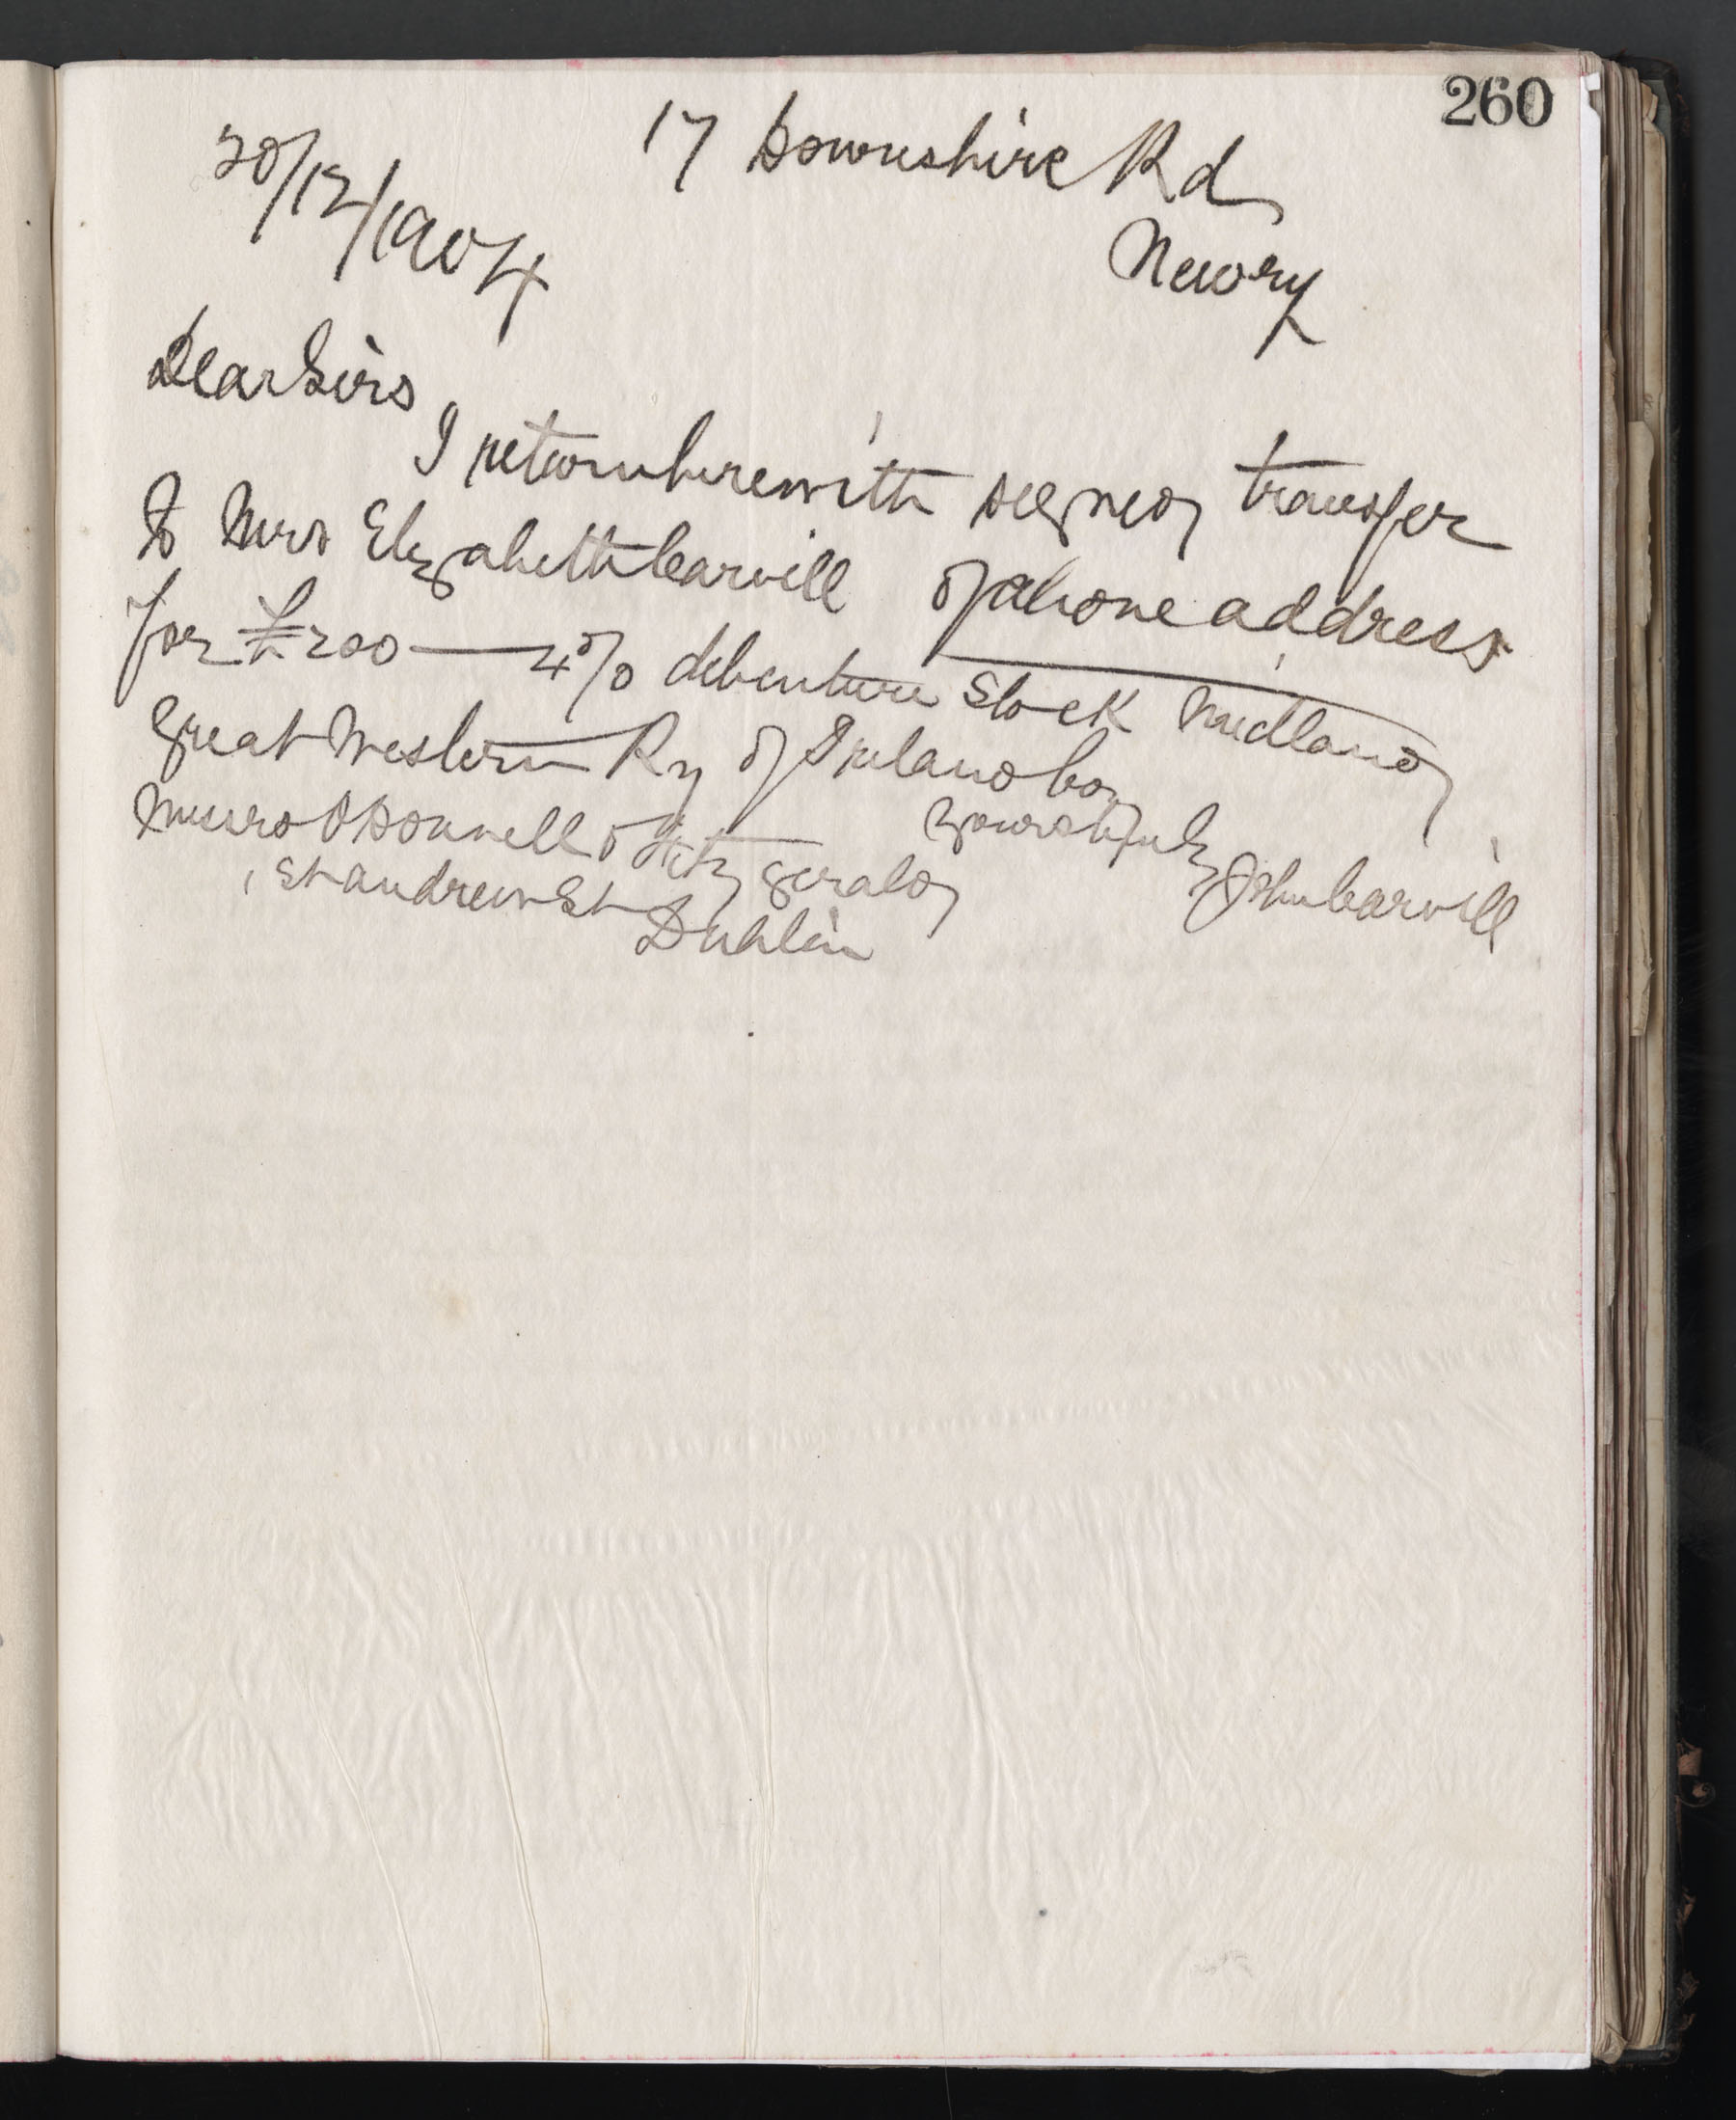 260
17 Downshire Rd
Newry
20/12/1904
Dear Sirs
I return herewith signed transfer
to Mrs Elizabeth Carvill of above address
for £200 — 4% debenture Stock Midland
Great Western Ry of Ireland Co.
Yours truly
John Carvill
Messrs O'Donnell & Fitzgerald
1 St Andrew St
Dublin